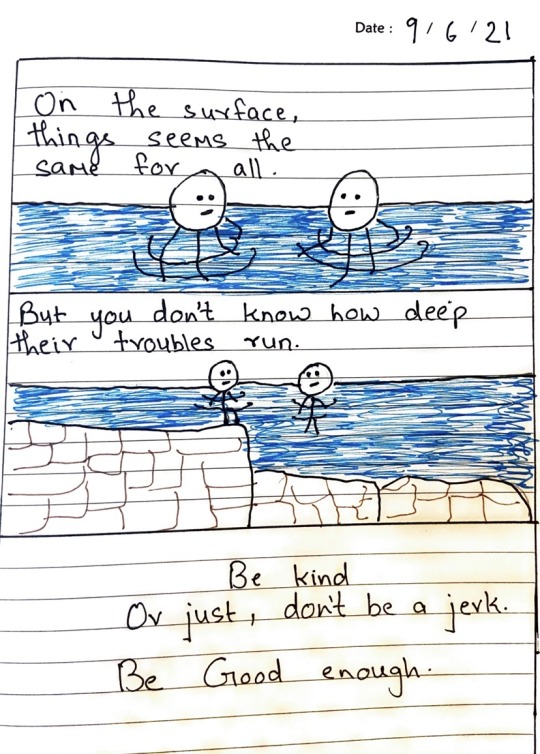 Date : 9 / 6 / 21
On the surface,
things seems the
same for all.
But you don't know how deep
their troubles run.
Be kind
Or just, don't be a jerk.
Be Good enough.